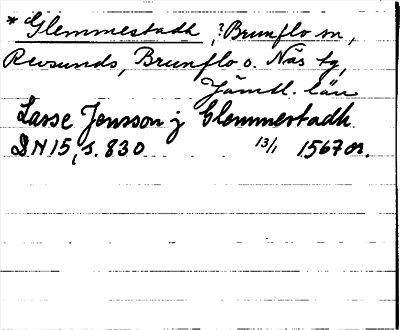 * Glemmestadh, ? Brunflo sn,
Revsunds, Brunflo o. Näs tg,
Jämtl. län
Lasse Jensson j Clemmestadh
DN 15, s. 830 13/1 1567 or.